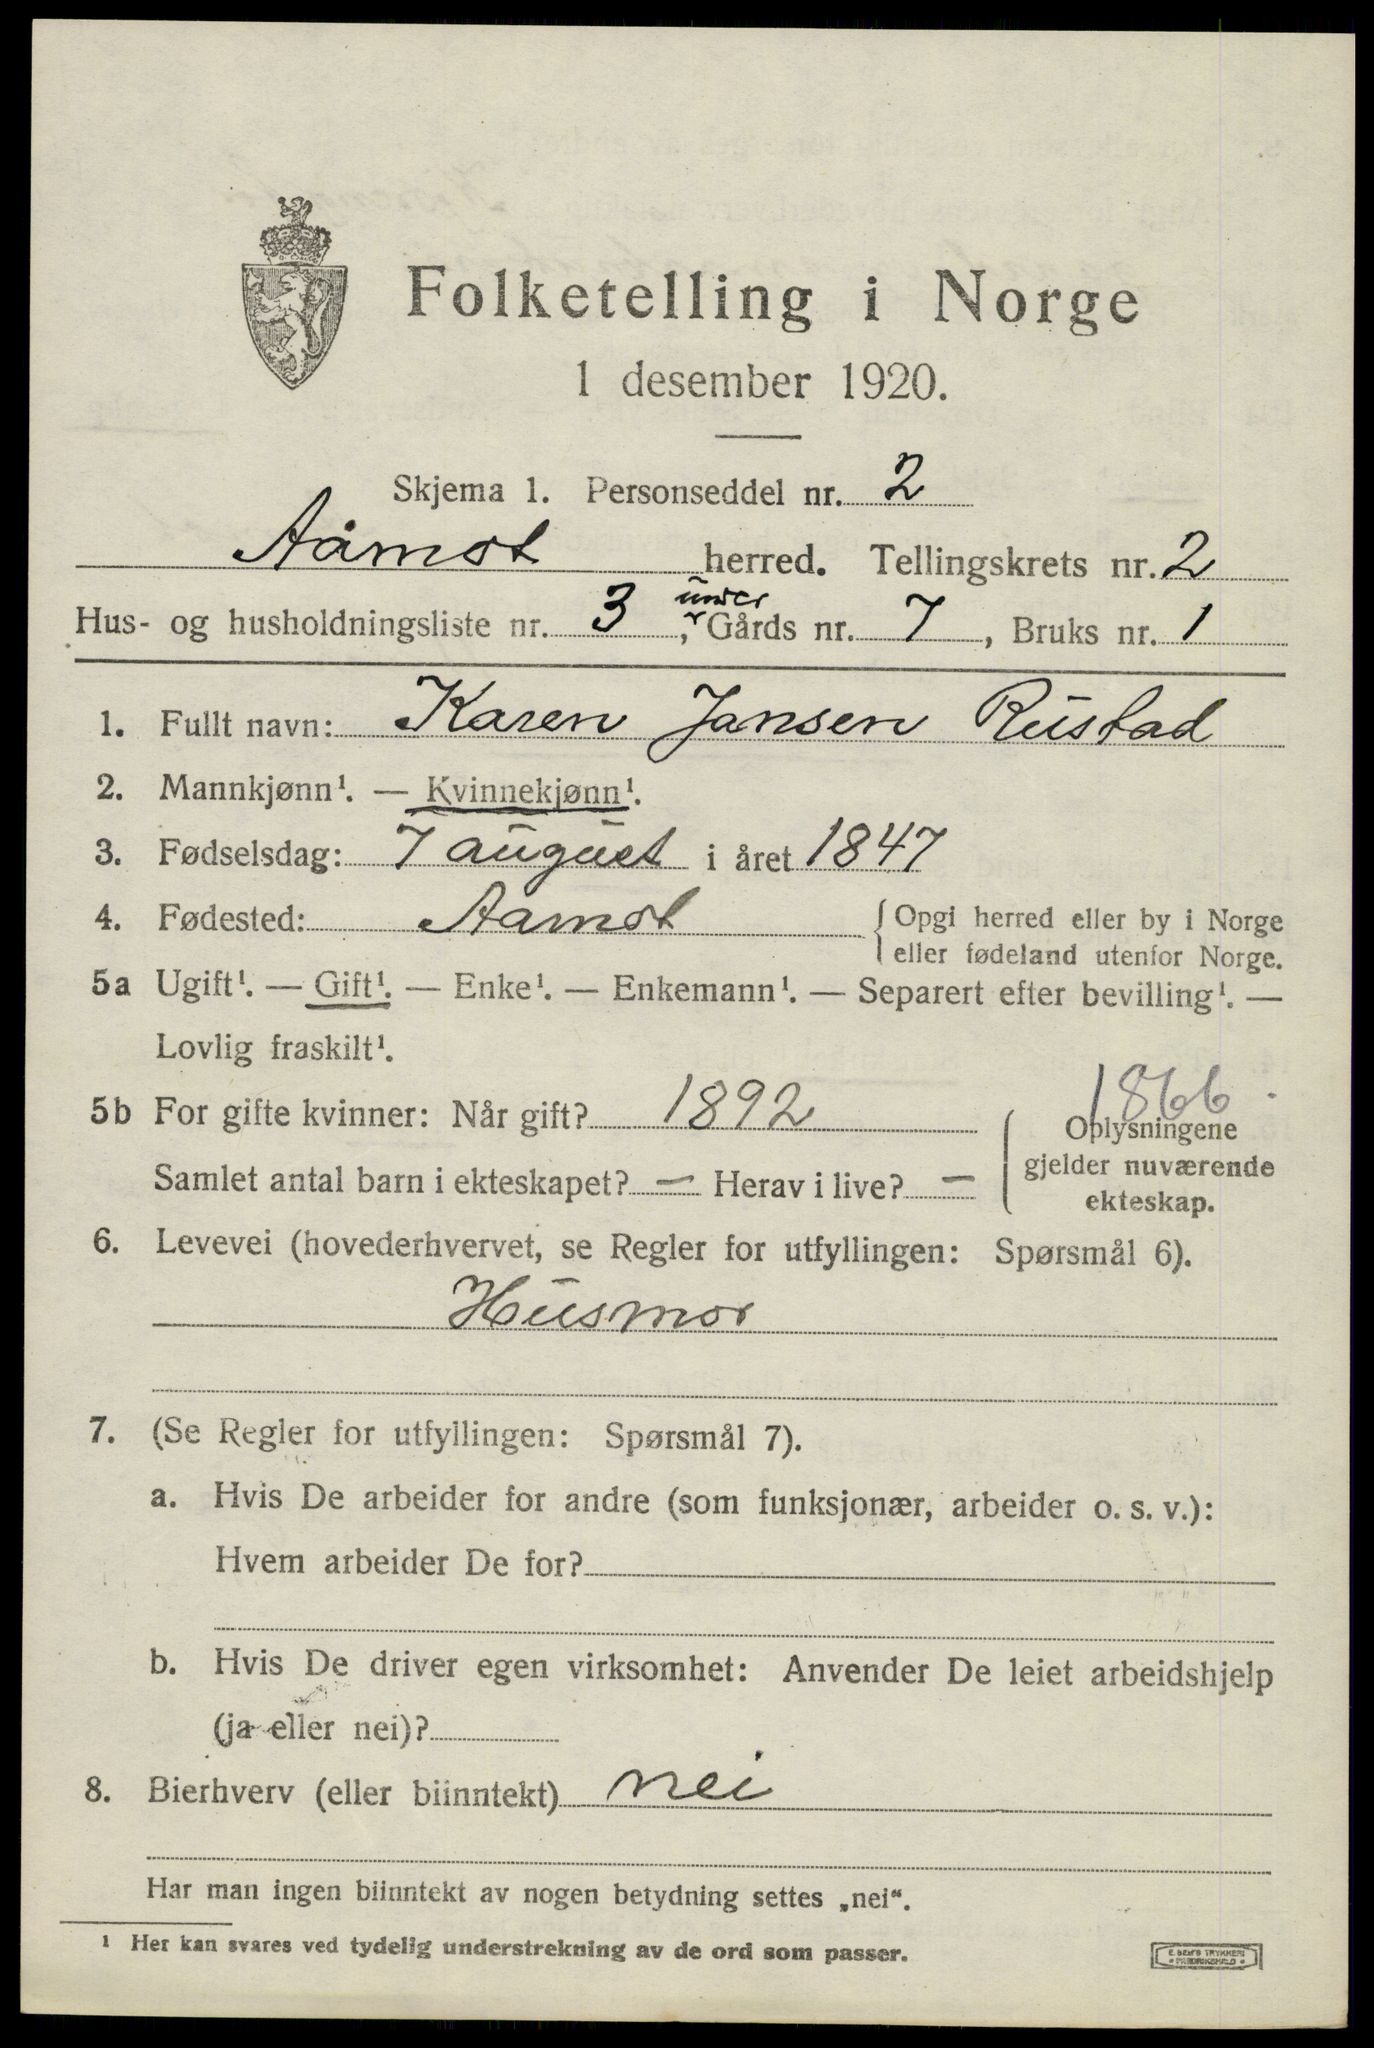 Folketelling i Norge
1 desember 1920.
Skjema 1. Personseddel nr. 2
Aåmot herred. Tellingskrets nr. 2
under
Hus- og husholdningsliste nr. 3, Gårds nr. 7, Bruks nr. 1
1. Fullt navn: Karen Jansen Rustad
2. Mannkjønn¹. — Kvinnekjønn¹.
3. Fødselsdag: 7 august i året 1847
4. Fødested: Aamot {Opgi herred eller by i Norge
eller fødeland utenfor Norge.
5a Ugift¹. — Gift¹. — Enke¹. — Enkemann¹. — Separert efter bevilling¹. —
Lovlig fraskilt¹.
1866
5b For gifte kvinner: Når gift? 1892 Oplysningene
gjelder nuværende
Samlet antal barn i ekteskapet? — Herav i live? — ekteskap.
6. Levevei (hovederhvervet, se Regler for utfyllingen: Spørsmål 6).
Husmor
7. (Se Regler for utfyllingen: Spørsmål 7).
a. Hvis De arbeider for andre (som funksjonær, arbeider o. s. v.):
Hvem arbeider De for?
b. Hvis De driver egen virksomhet: Anvender De leiet arbeidshjelp
(ja eller nei)?
8. Bierhverv (eller biinntekt) nei
Har man ingen biinntekt av nogen betydning settes „nei“.
¹ Her kan svares ved tydelig understrekning av de ord som passer.
E. SEM'S TRYKKERI
FREDRIKSHALD